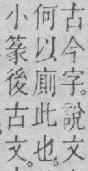 古今字。說文
何以廁此也。
小篆後古文。